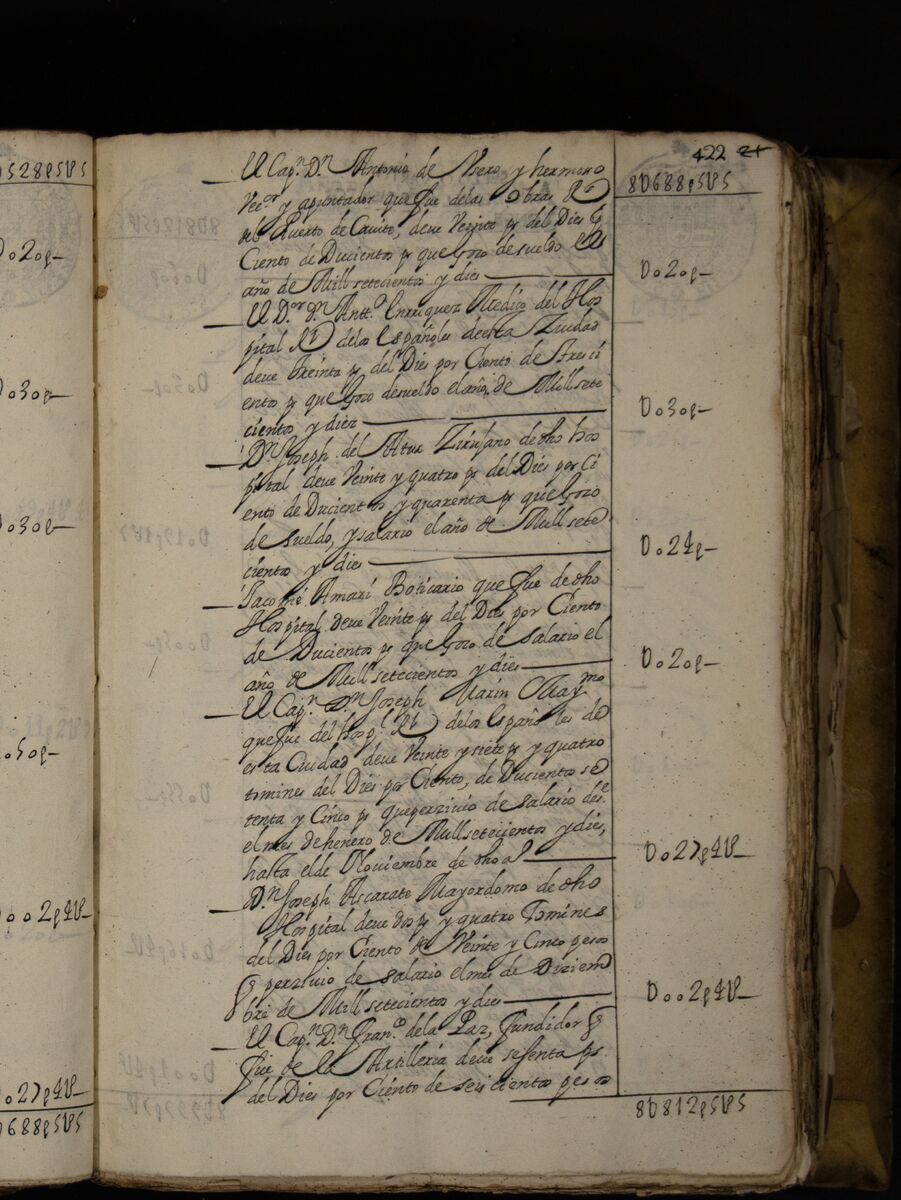 422 21
8U688p5U5
El Capn Dn Antonio de Nsero y hermoso
Veer y apuntador que fue delas Obras Rs
del Puerto de Cavite, deve Veijnte ps del Dies p
Ciento de Ducientos ps que Goso de sueldo el
año de Mill setecientos y dies
U020p
El Dor dn Antto Enrriquez Medico del Hos
pital Rl delos Españoles desta Ziudad
deve treinta ps del Dies por Ciento de tresci
entos ps que Goso desueldo el año de Mill sete
cientos y diez
U030p
Dn Joseph del Altux Zirujano de dho hos
pital deve Veinte y quatro ps del Dies por Ci
ento de Ducientos y quarenta ps que Goso
de sueldo, y salario el año de Mill sete
cientos y dies
U024p
Jacome Amari Boticario que fue de dho
Hospital deve Veinte ps del Dies por Ciento
de Ducientos ps que Goso de salario el
año de Mill setecientos y dies
U020p
El Capn Dn Joseph Marin Maymo
que fue del hospl Rl delos Españoles de
esta Ciudad deve Veinte y siete ps y quatro
tomines del Dies por Ciento, de Ducientos se
tenta y Cinco ps que perzivio de salario desde
el mes de henero de Mill setecientos y dies,
hasta el de Noviembre de dho aº
U027p4U
Dn Joseph Ascarate Mayordomo de dho
Hospital deve dos ps y quatro Tomines
del Dies por Ciento de Veinte y Cinco pesos
q perzivio de salario el mes de Diziem
bre de Mill setecientos y dies
U002p4U
El Capn Dn Franco dela Paz, fundidor q
fue de la Artilleria deve sesenta ps
del Dies por Ciento de seiscientos pesos
8U812p5U5